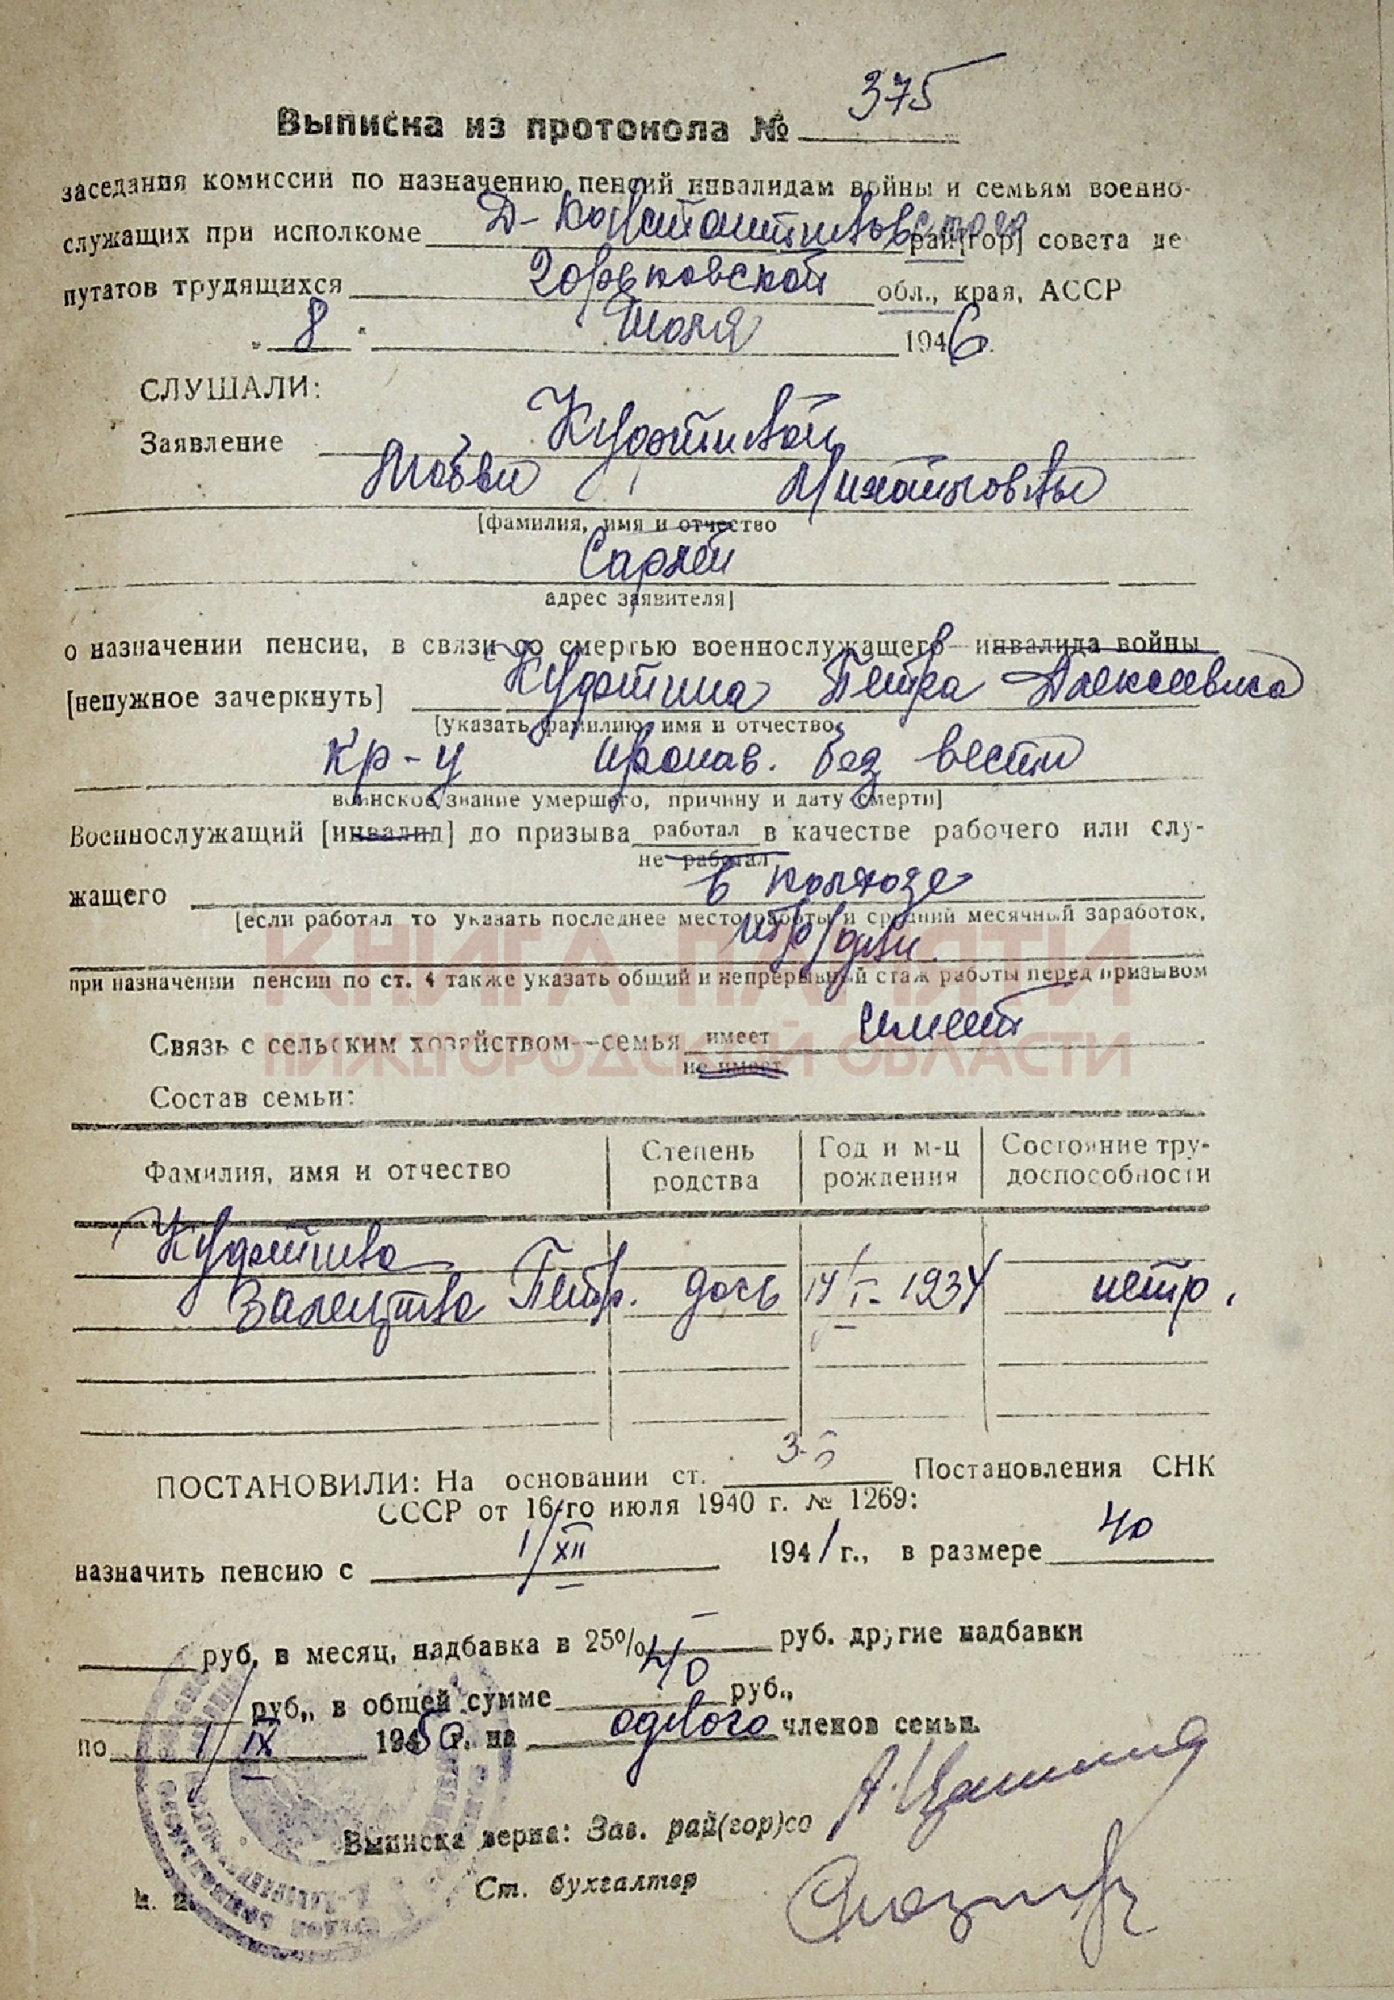 Выписка из протокола № 375
заседания комиссии по назначению пенсий инвалидам войны и семьям военно-
служащих при исполкоме Д-Константиновского рай[гор] совета де
путатов трудящихся Горьковской обл., края, АССР
„ 8 " Июля 1946 г.
СЛУШАЛИ:
Заявление Кудряшовой
Любови Михайловны
[фамилия, имя и отчество
Сарлей
адрес заявителя]
о назначении пенсии, в связи со смертью военнослужащего—инвалида войны
[ненужное зачеркнуть] Петра Алексеевича
[указать фамилию, имя и отчество,
кр-ц пропав. без вести
воинское звание умершего, причину и дату смерти]
Военнослужащий [инвалид] до призыва работал в качестве рабочего или слу-
не работал
жащего в колхозе
[если работал то указать последнее место работы и средний месячный заработок,
при назначении пенсии по ст. 4 также указать общий и непрерывный стаж работы перед призывом
КНИГА ПАМЯТИ
НИЖЕГОРОДСКОЙ ОБЛАСТИ
Связь с сельским хозяйством—семья имеет имеет
не имеет
Состав семьи:
Фамилия, имя и отчество Степень родства Год и м-ц рождения Состояние тру-доспособности
Валентина Петр. дочь 14/I-1934 нетр.
ПОСТАНОВИЛИ: На основании ст. 3-й Постановления СНК
СССР от 16-го июля 1940 г. № 1269:
назначить пенсию с 1/XII 1941 г., в размере 40
руб. в месяц, надбавка в 25% — руб. другие надбавки
руб., в общей сумме 40 руб.,
по 1/IX 1950 г. на одного членов семьи.
Выписка верна: Зав. рай(гор)со
Ст. бухгалтер
М. П.